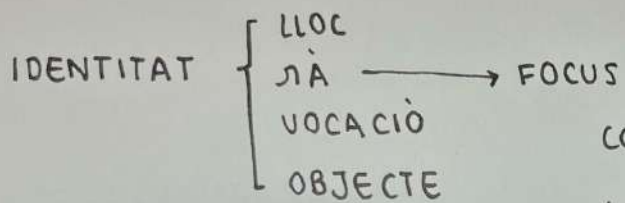 IDENTITAT
LLOC
MÀ → FOCUS
VOCACIÒ
OBJECTE